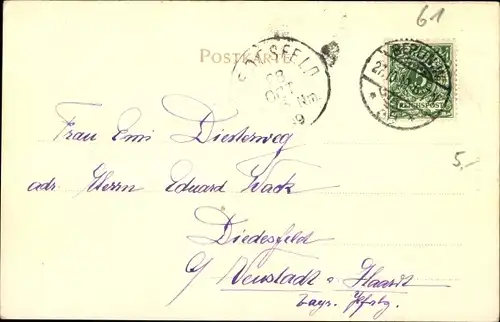 61
POSTKARTE
REICHSPOST
5
Frau Emi Diesterweg
adr. Herrn Eduard Wack
Diedesfeld
5.-
c/ Neustadt a. Haardt
bayr. Pfalz.